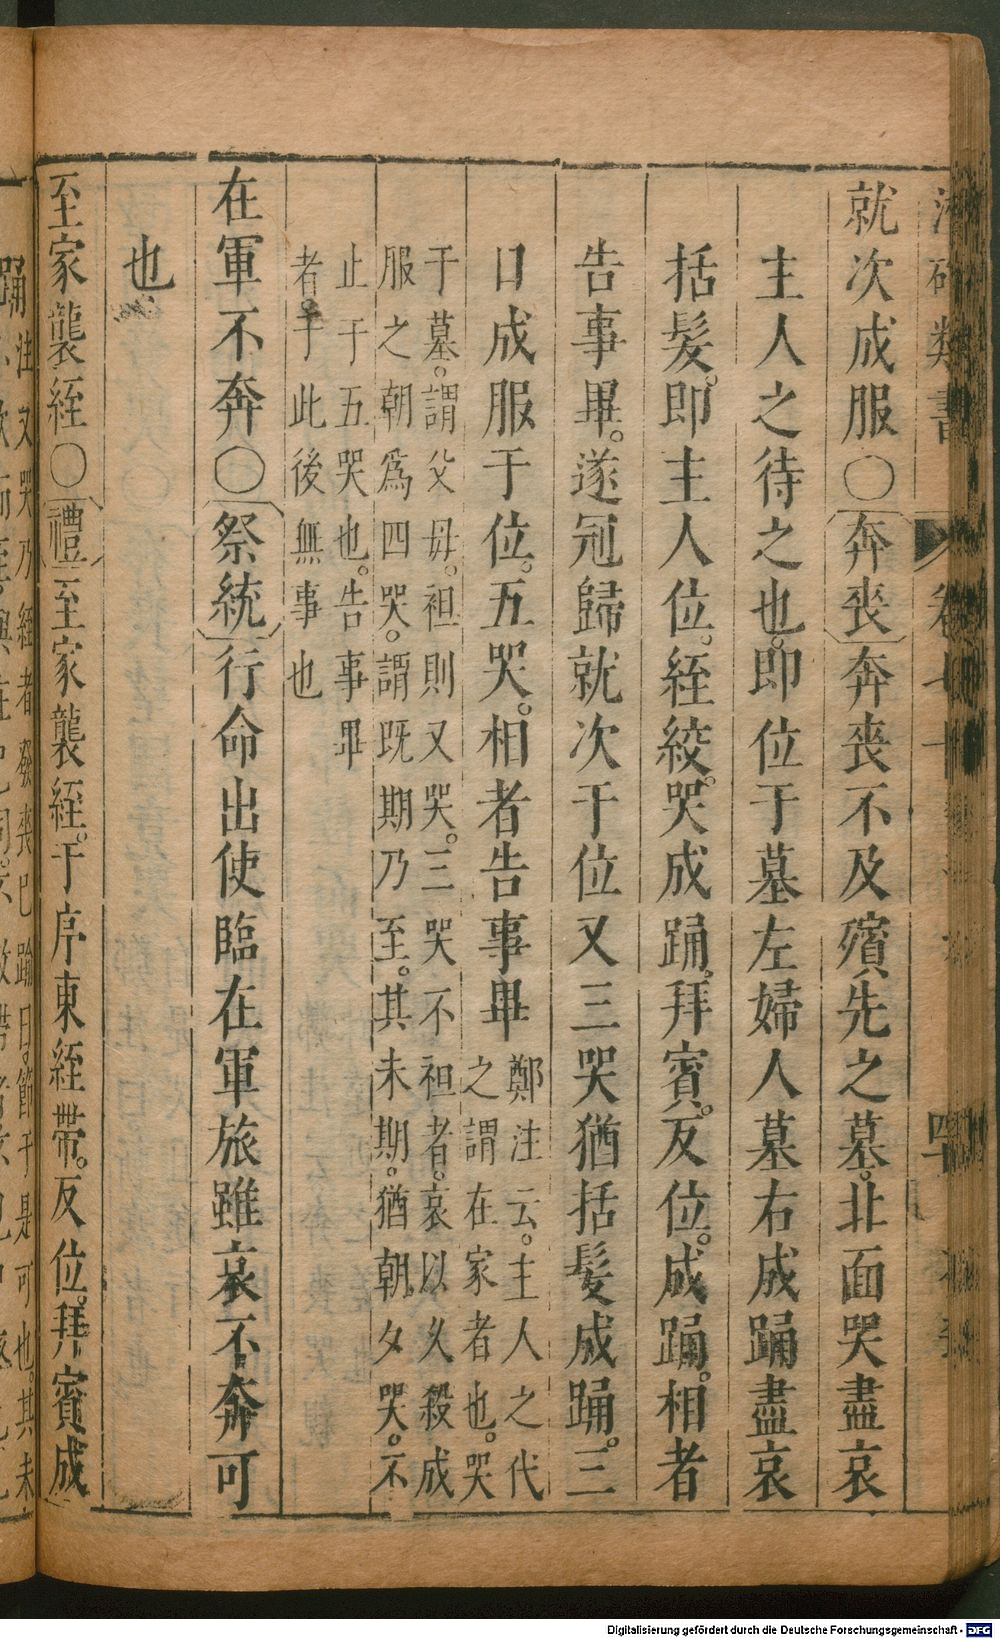 類書
就次成服〇奔喪奔喪不及殯先之墓。北面哭盡哀
主人之待之也。即位于墓左婦人墓右成踊盡哀
括髮。即主人位。絰絞。哭成踊。拜賓。反位。成踊。相者
告事畢。遂冠歸就次于位又三哭猶括髮成踊。三
日成服于位。五哭。相者告事畢
鄭注云。主人之代
之謂在家者也。哭
于墓。謂父母。袒則又哭。三哭不袒者。哀以久殺成
服之朝為四哭。謂既期乃至。其未期。猶朝夕哭。不
止于五哭也。告事畢
者于此後無事也
在軍不奔〇祭統行命出使臨在軍旅雖哀不奔可
也
至家襲絰〇禮至家襲絰。于序東絰帶。反位。拜賓成
踊注又哭乃絰者發喪已踰日節于是可也。其未
Digitalisierung gefördert durch die Deutsche Forschungsgemeinschaft - DFG